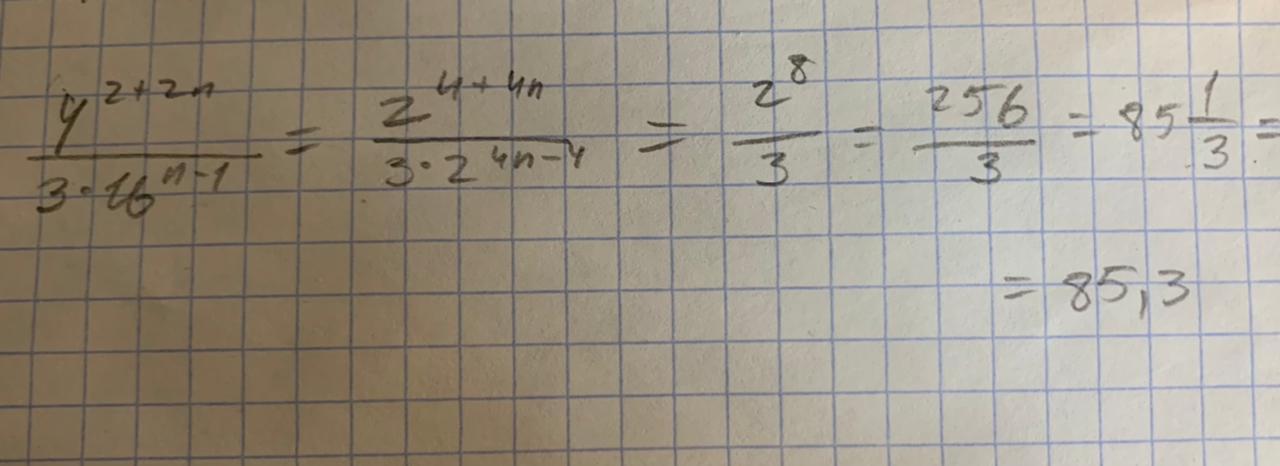 4^{2+2n} / 3·16^{n-1} = 2^{4+4n} / 3·2^{4n-4} = 2^8 / 3 = 256 / 3 = 85 1/3 =
= 85,3